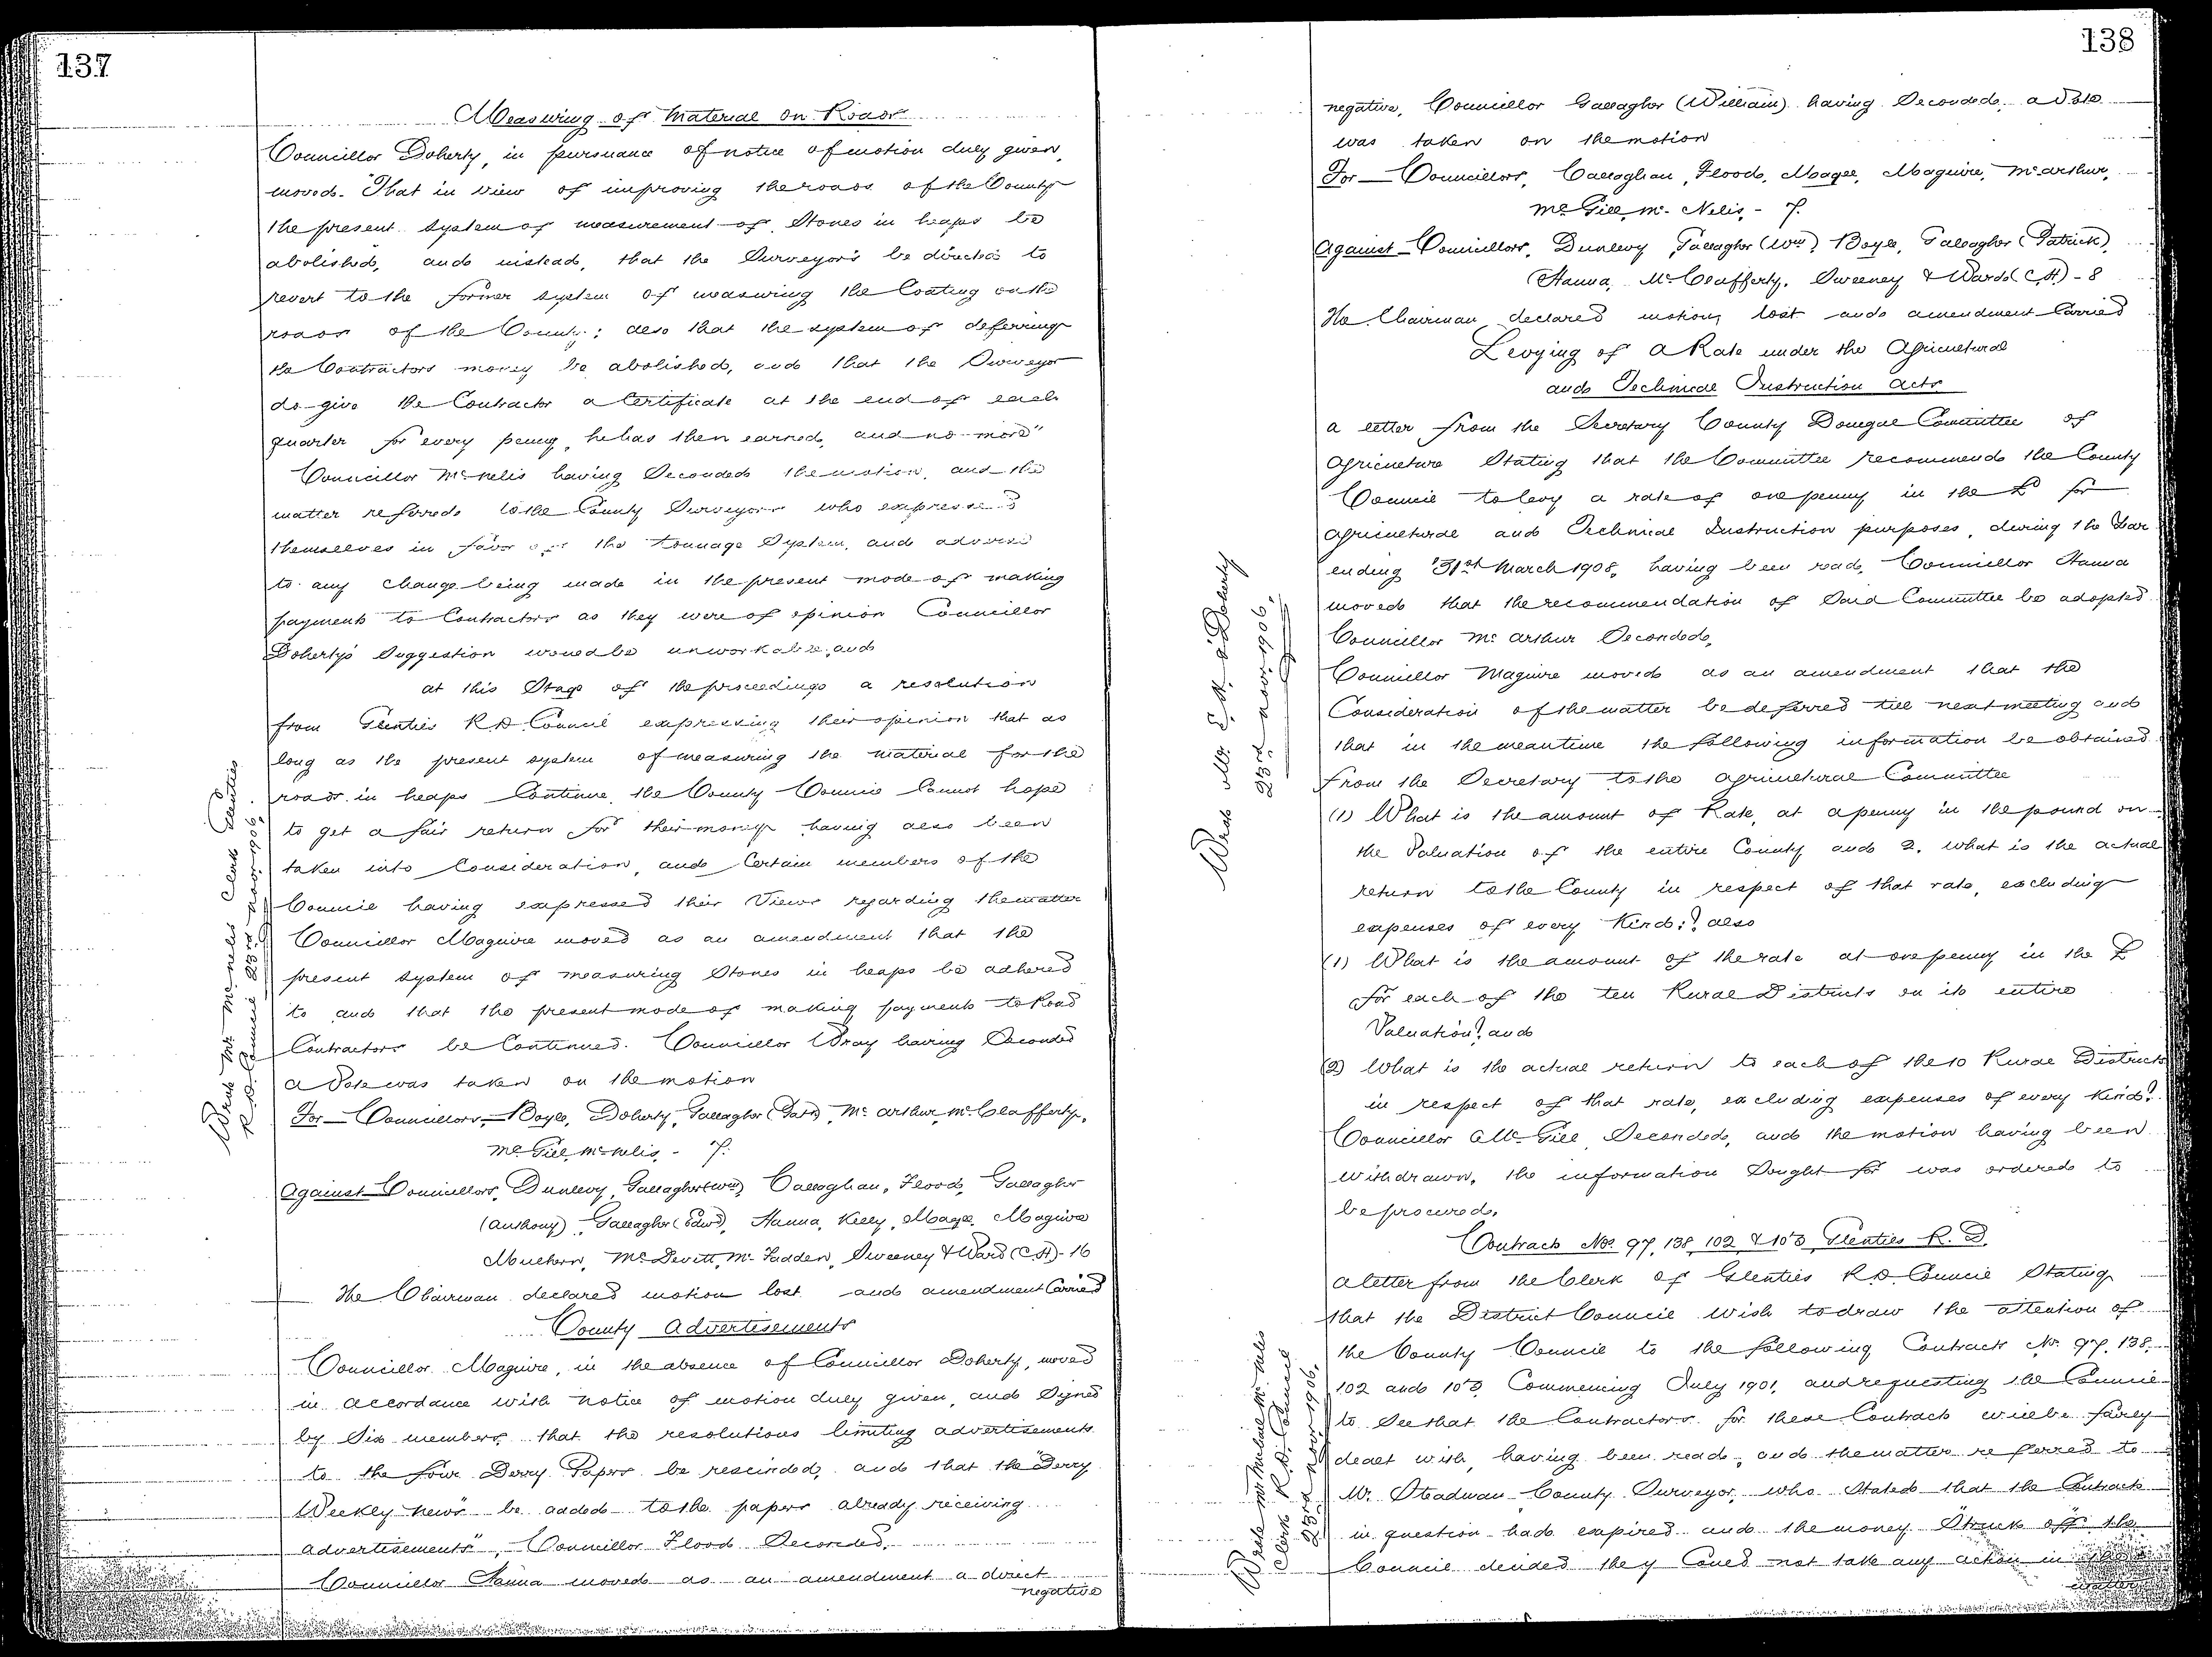 137
Measuring of Material on Roads
Councillor Doherty, in pursuance of notice of motion duly given,
moved- "That in view of improving the roads of the County
the present system of measurement of Stones in heaps be
abolished, and instead, that the Surveyors be directed to
revert to the former system of measuring the Coating on the
roads of the County; also that the system of deferring
the Contractors money be abolished, and that the Surveyor
do give the Contractor a Certificate at the end of each
quarter for every penny he has then earned, and no more"
Councillor McNelis having Seconded the motion, and the
matter referred to the County Surveyors who expressed
themselves in favor of the Tonnage System, and adverse
to any change being made in the present mode of making
payments to Contractors as they were of opinion Councillor
Doherty's Suggestion would be unworkable, and
at this Stage of the proceedings a resolution
from Glenties R.D. Council expressing their opinion that as
long as the present system of measuring the material for the
roads in heaps Continue the County Council Cannot hope
to get a fair return for their money having also been
taken into Consideration, and Certain members of the
Council having expressed their Views regarding the matter
Councillor Maguire moved as an amendment that the
present system of measuring Stones in heaps be adhered
to and that the present mode of making payments to Road
Contractors be Continued. Councillor Wray having Seconded
a Vote was taken on the motion
For - Councillors, Boyle, Doherty, Gallagher (Patk), McArthur, McClafferty,
McGill, McNelis, - 7.
Against - Councillors, Dunlevy, Gallagher (Wm), Callaghan, Flood, Gallagher
(Anthony), Gallagher (Edwd), Hanna, Kelly, Magee, Maguire
Mulhern, McDevitt, McFadden, Sweeney & Ward (C.H) - 16
The Chairman declared motion lost and amendment Carried
County Advertisements
Councillor Maguire, in the absence of Councillor Doherty, moved
in accordance with notice of motion duly given, and Signed
by Six members, that the resolutions limiting advertisements
to the four Derry Papers be rescinded, and that the "Derry
Weekly News" be added to the papers already receiving
advertisements", Councillor Flood Seconded.
Councillor Hanna moved as an amendment a direct
negative
Wrote Mr. McNelis Clerk Glenties
R.D. Council 23rd Novr. 1906.
138
negative, Councillor Gallagher (William) having Seconded, a Vote
was taken on the motion
For - Councillors, Callaghan, Flood, Magee, Maguire, McArthur,
McGill, McNelis, - 7.
Against - Councillors, Dunlevy, Gallagher (Wm), Boyle, Gallagher (Patrick),
Hanna, McClafferty, Sweeney & Ward (C.H) - 8
The Chairman declared motion lost and amendment Carried
Levying of a Rate under the Agricultural
and Technical Instruction Acts
A letter from the Secretary County Donegal Committee of
Agriculture Stating that the Committee recommend the County
Council to levy a rate of one penny in the £ for
Agricultural and Technical Instruction purposes, during the Year
ending 31st March 1908, having been read, Councillor Hanna
moved that the recommendation of Said Committee be adopted
Councillor McArthur Seconded,
Councillor Maguire moved as an amendment that the
Consideration of the matter be deferred till next meeting and
that in the meantime the following information be obtained
from the Secretary to the Agricultural Committee
(1) What is the amount of Rate, at a penny in the pound on
the Valuation of the entire County and 2. what is the actual
return to the County in respect of that rate, excluding
expenses of every Kind:? also
(1) What is the amount of the rate at one penny in the £
for each of the ten Rural Districts on its entire
Valuation? and
(2) What is the actual return to each of the 10 Rural Districts
in respect of that rate, excluding expenses of every Kind?
Councillor McGill Seconded, and the motion having been
withdrawn, the information Sought for was ordered to
be procured.
Wrote Mr. E. A. O'Doherty
23rd Novr. 1906.
Contracts Nos. 97, 138, 102 & 103 Glenties R. D.
A letter from the Clerk of Glenties R.D. Council Stating
that the District Council wish to draw the attention of
the County Council to the following Contracts No. 97, 138,
102 and 103, Commencing July 1901, and requesting the Council
to See that the Contractors for these Contracts will be fairly
dealt with, having been read, and the matter referred to
Mr. Steadman County Surveyor, who Stated that the Contracts
in question had expired and the money "Struck off" the
Council decided they Could not take any action in the
matter
Wrote Mr Michael McNelis
Clerk R.D. Council
23rd Novr 1906.